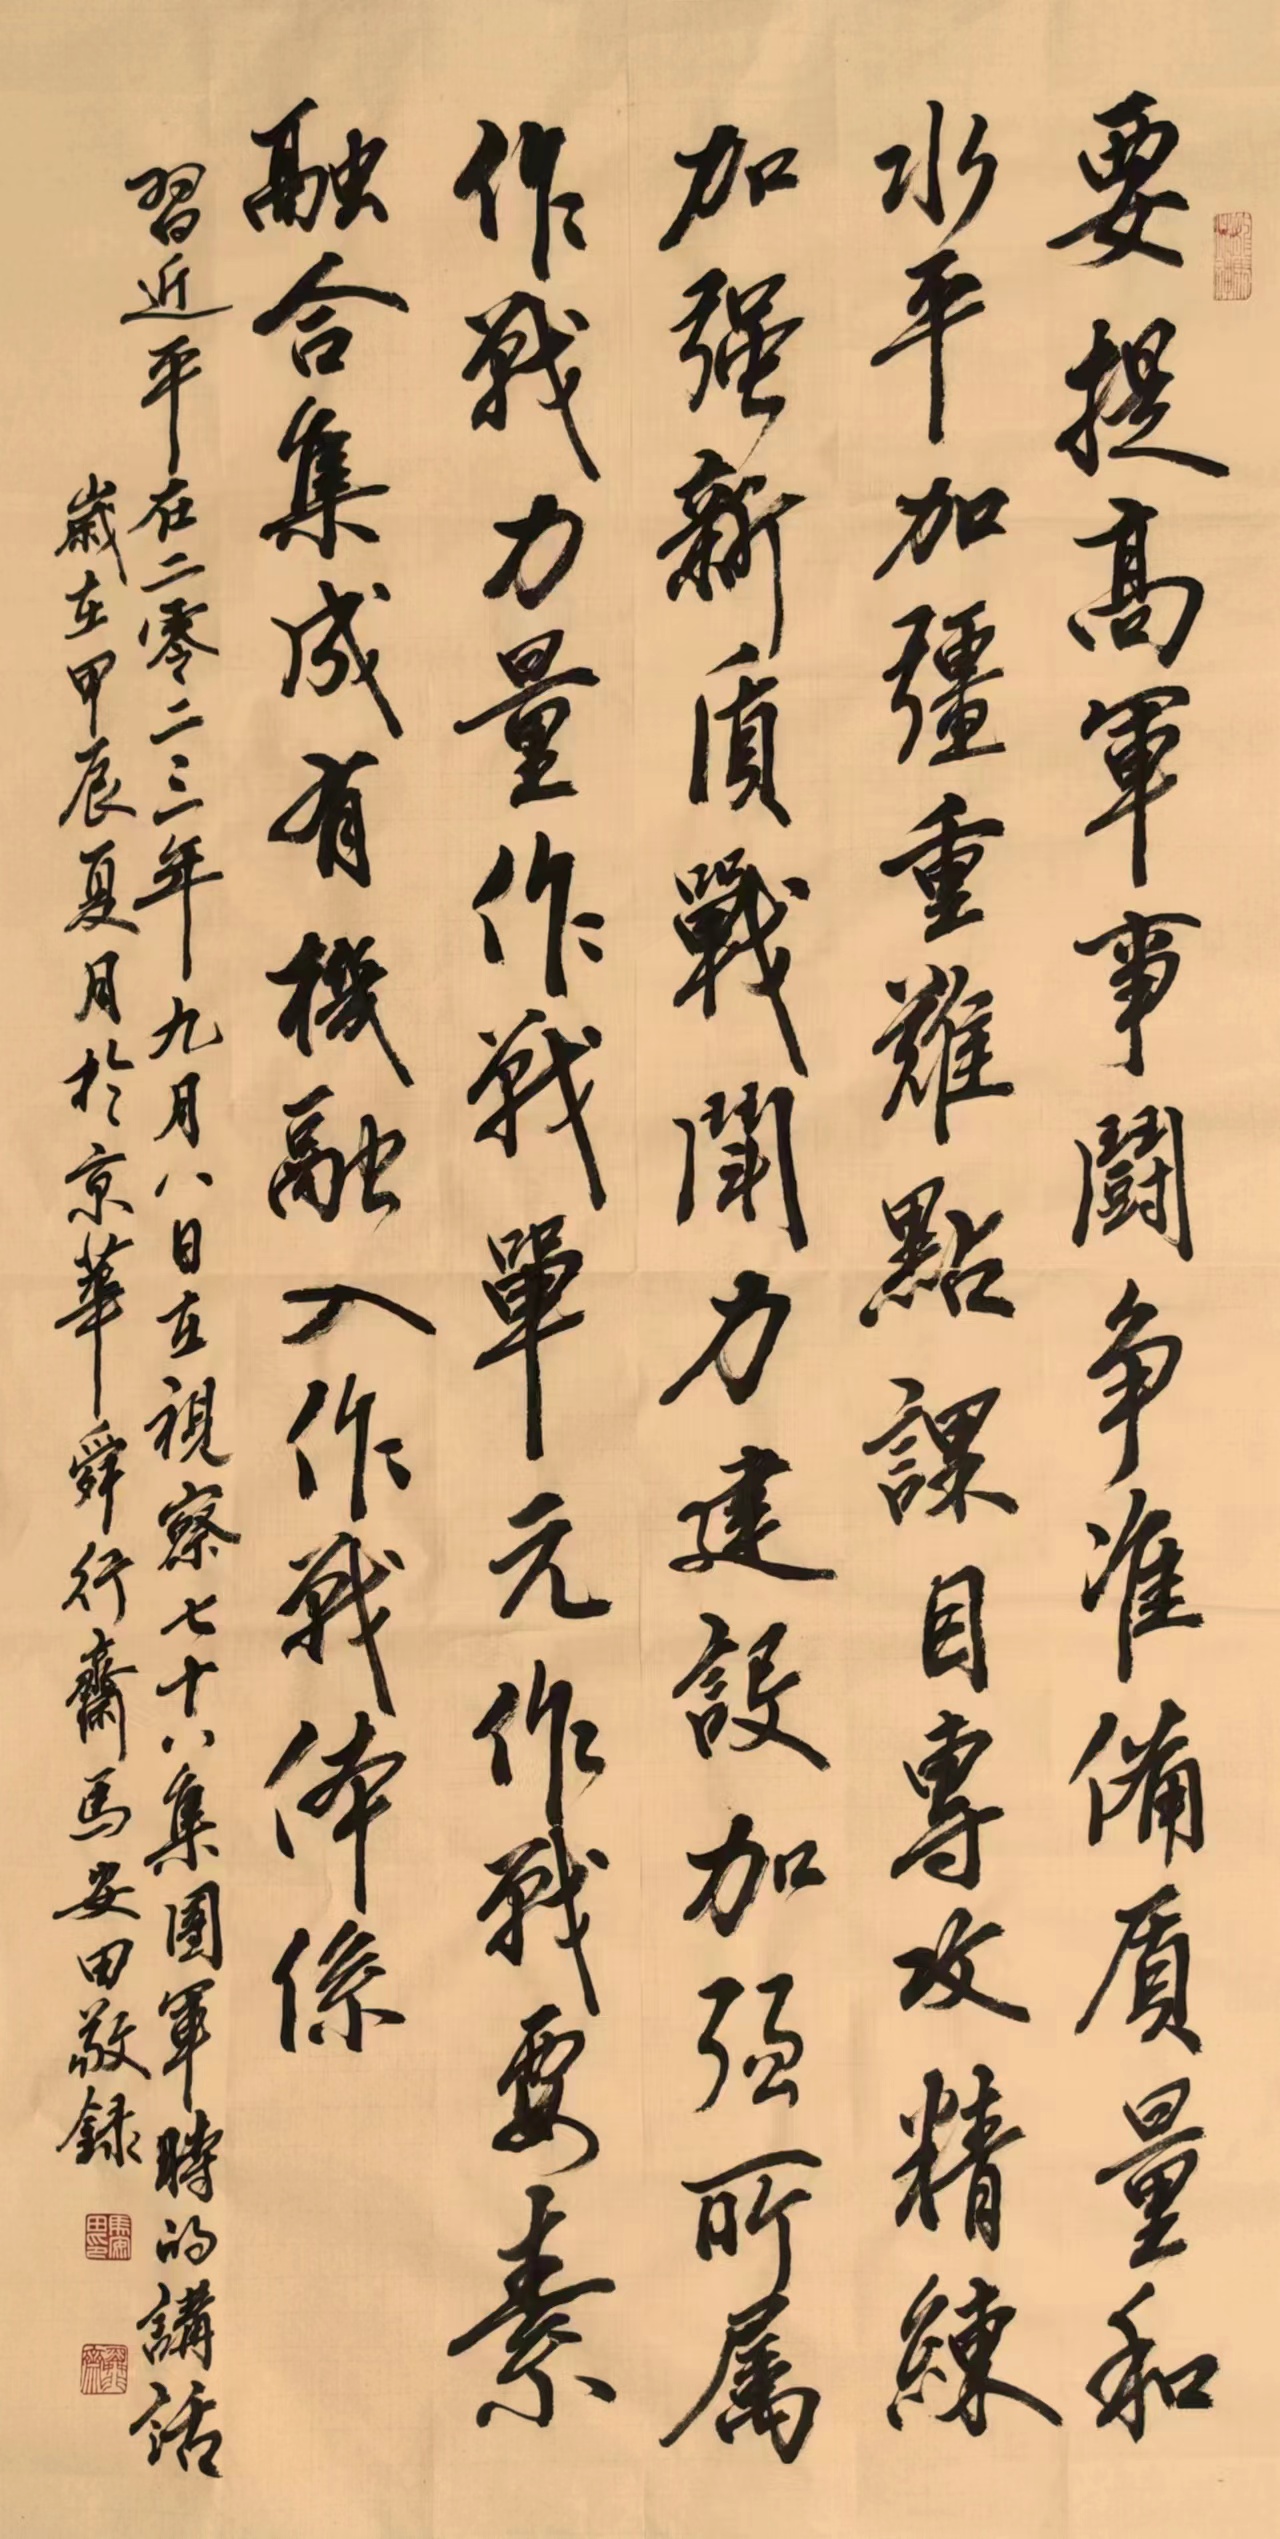 要提高軍事鬪争准備质量和
水平加彊重難點課目專攻精練
加强新质戰鬪力建設加强所属
作戰力量作戰單元作戰要素
融合集成有機融入作戰体係
習近平在二零二三年九月八日在視察七十八集團軍時的講話
歲在甲辰夏月於京華舜行齋馬安田敬録
馬安田印